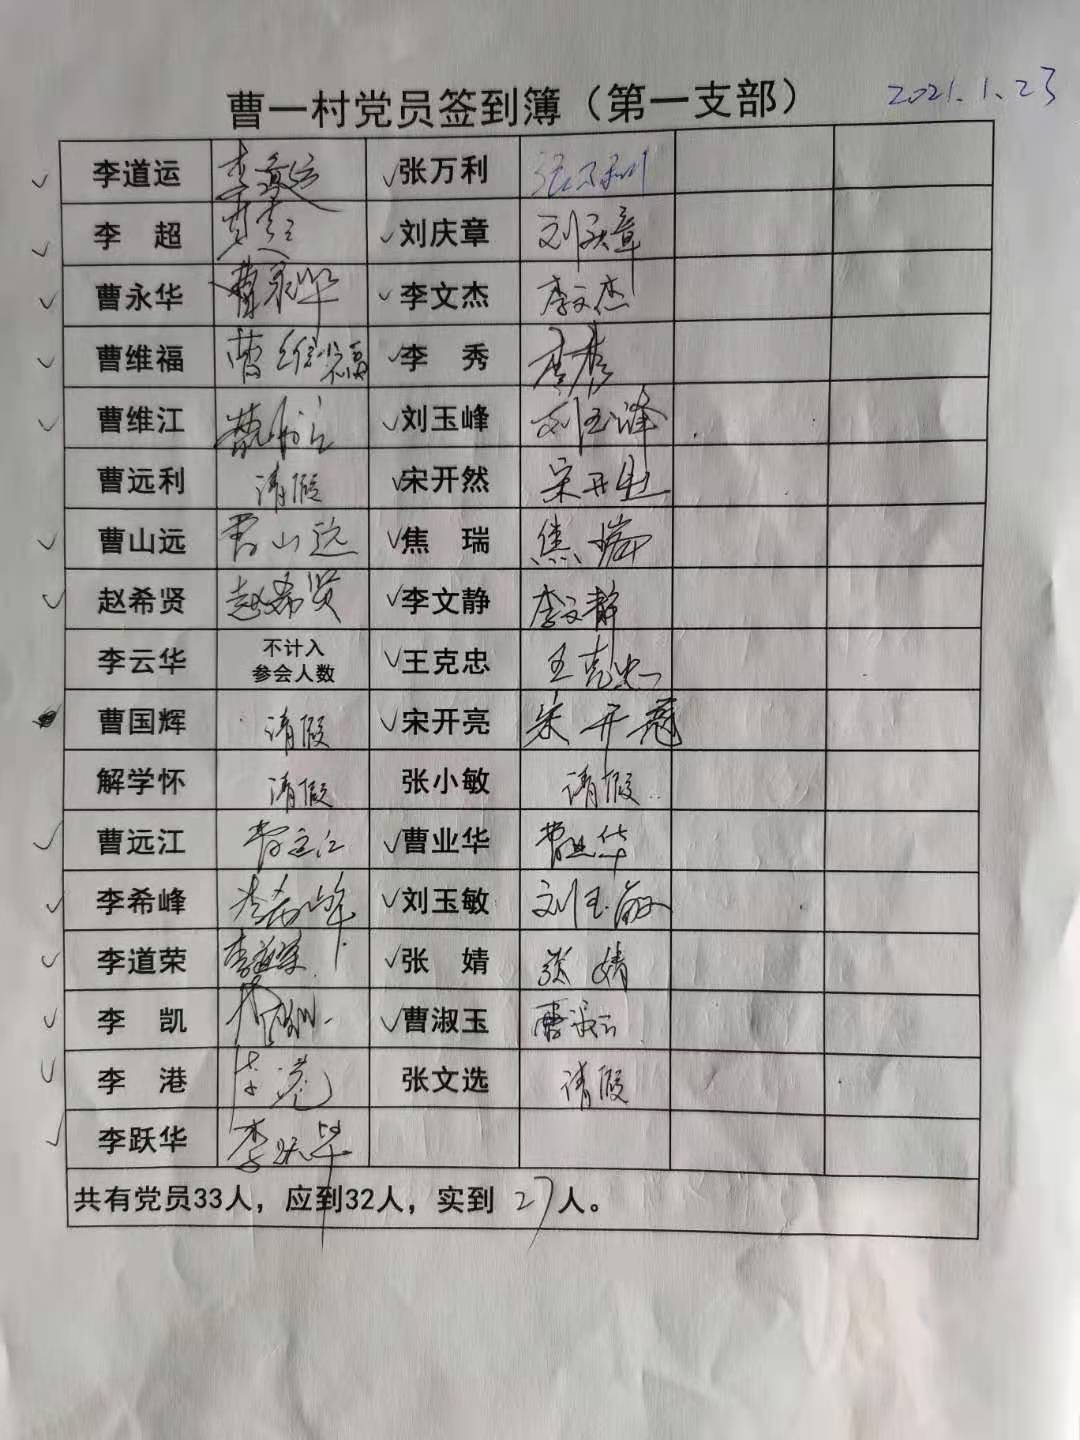 曹一村党员签到簿（第一支部） 2021.1.23
李道运 李道运 张万利 张万利
李 超 李超 刘庆章 刘庆章
曹永华 曹永华 李文杰 李文杰
曹维福 曹维福 李 秀 李秀
曹维江 曹维江 刘玉峰 刘玉峰
曹远利 请假 宋开然 宋开然
曹山远 曹山远 焦 瑞 焦瑞
赵希贤 赵希贤 李文静 李文静
李云华 不计入 王克忠 王克忠
参会人数
曹国辉 请假 宋开亮 宋开亮
解学怀 请假 张小敏 请假
曹远江 曹远江 曹业华 曹业华
李希峰 李希峰 刘玉敏 刘玉敏
李道荣 李道荣 张 婧 张婧
李 凯 李凯 曹淑玉 曹淑玉
李 港 李港 张文选 请假
李跃华 李跃华
共有党员33人，应到32人，实到 27人。